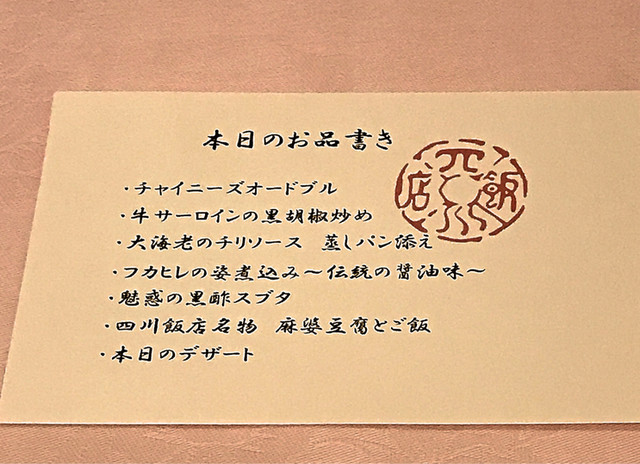 本日のお品書き
・チャイニーズオードブル
・牛サーロインの黒胡椒炒め
・大海老のチリソース　蒸しパン添え
・フカヒレの姿煮込み～伝統の醤油味～
・魅惑の黒酢スブタ
・四川飯店名物　麻婆豆腐とご飯
・本日のデザート
飯店